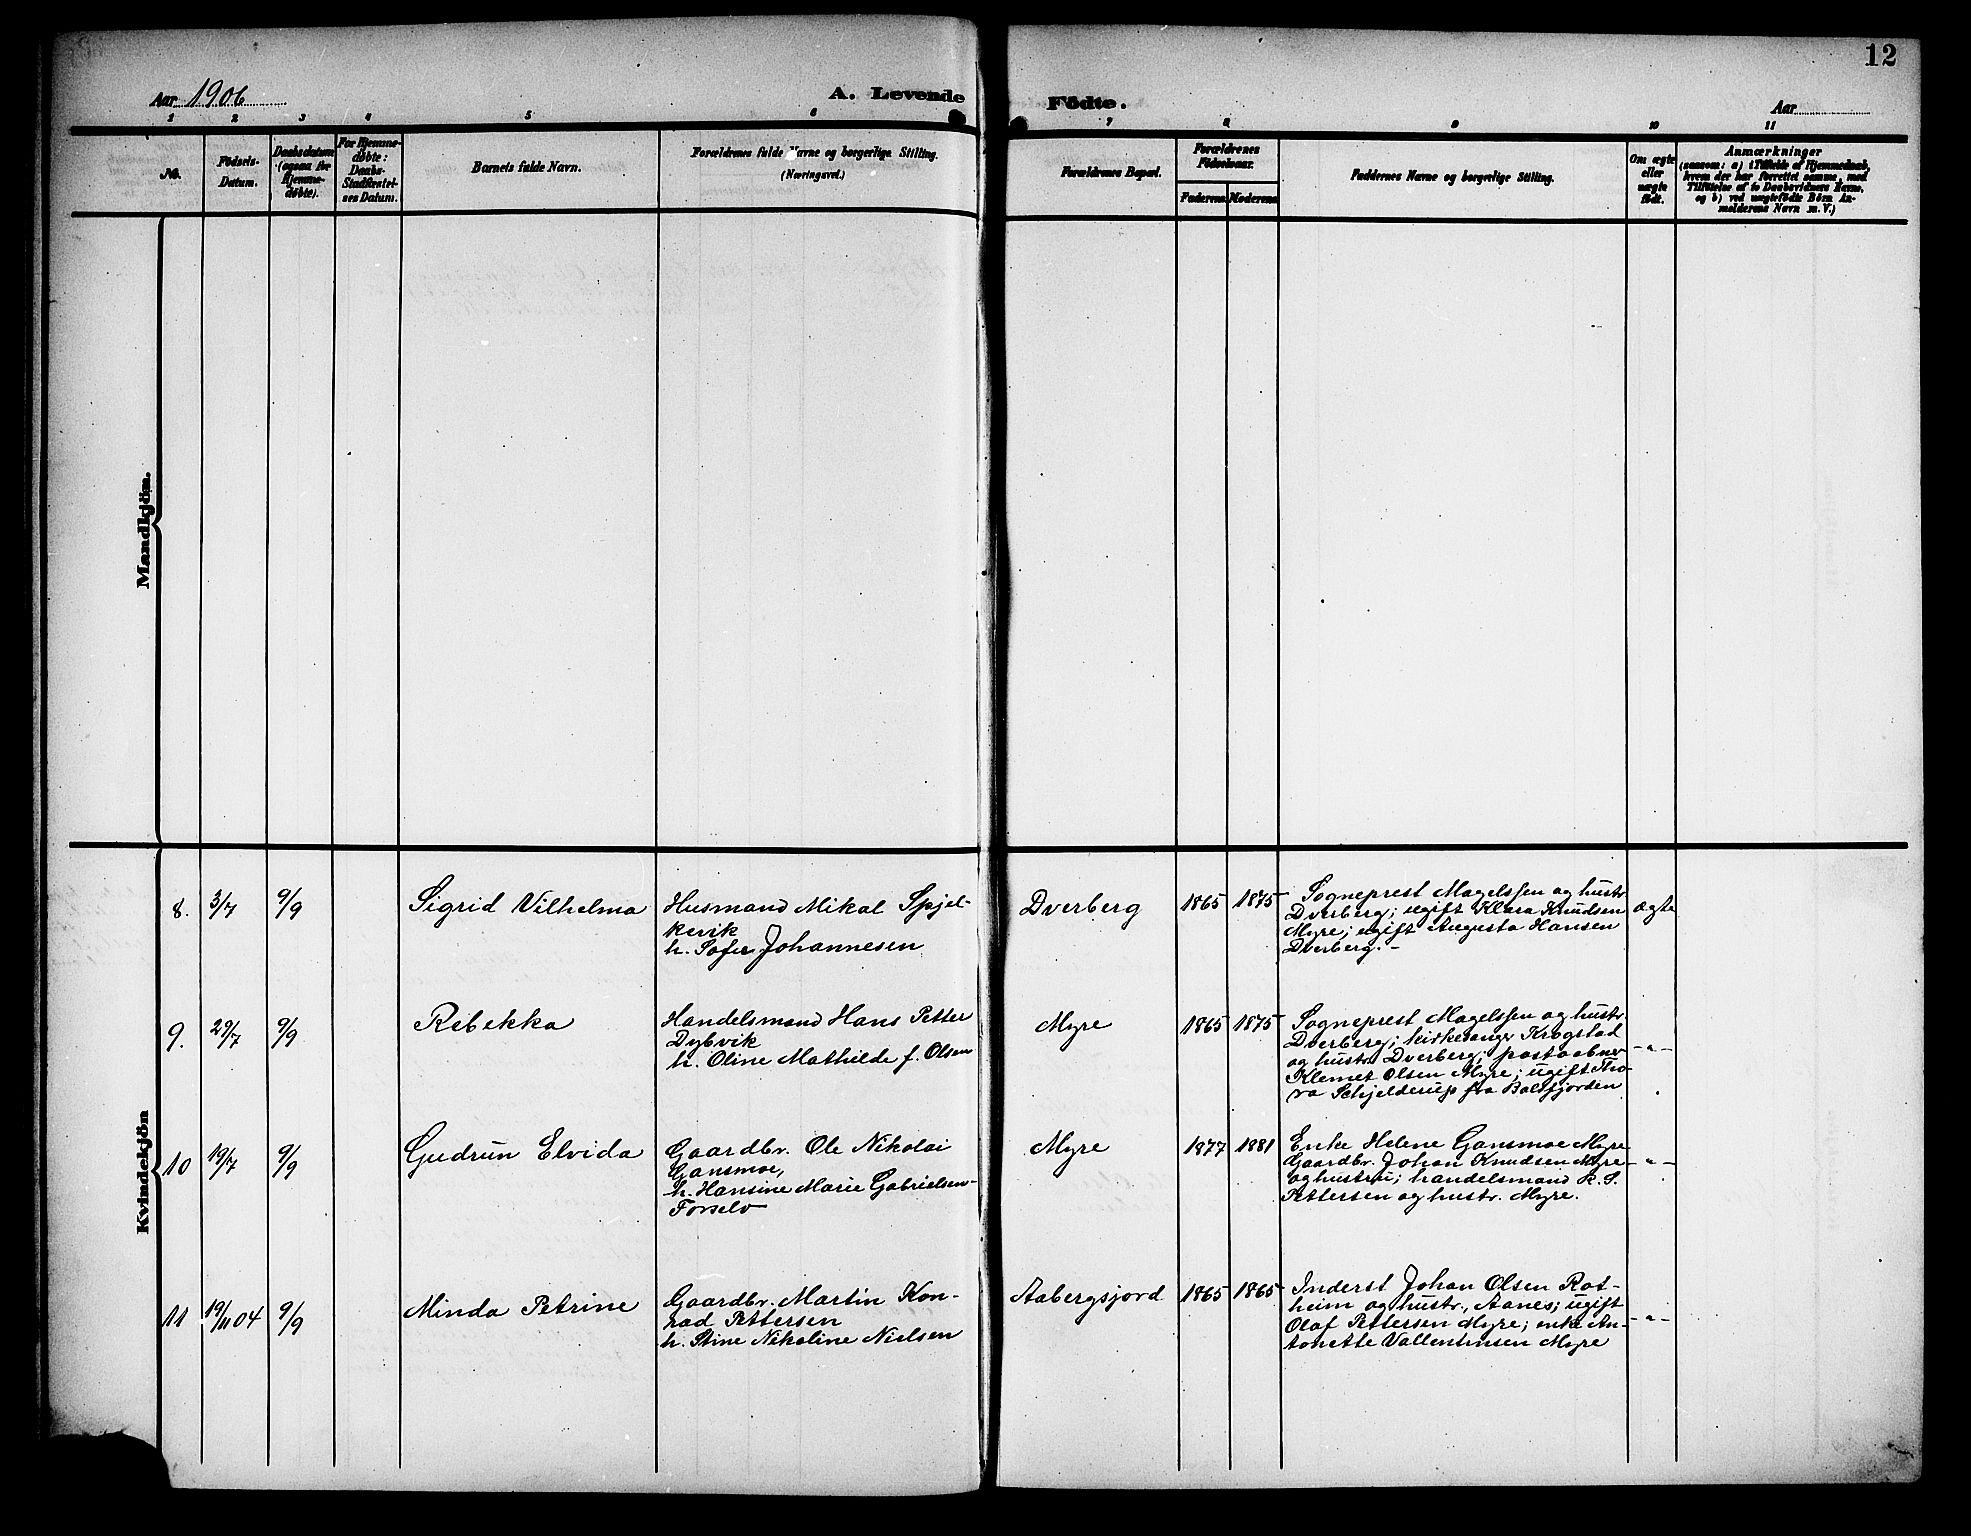 12
Aar 1906
A. Levende Födte.
Aar
1 2 3 4 5 6 7 8 9 10 11
No.
Födsels-
Datum.
Daabsdatum
(ogsaa for
Hjemme-
døbte).
For Hjemme-
døbte:
Daabs-
Stadfæstel-
ses Datum.
Barnets fulde Navn.
Forældrenes fulde Navne og borgerlige Stilling.
(Næringsvei.)
Forældrenes Bopæl.
Forældrenes
Födselsaar.
Faderens
Moderens
Faddernes Navne og borgerlige Stilling.
Om ægte
eller
uægte
født.
Anmærkninger
(saasom: a) i Tilfælde af Hjemmedaab,
hvem der har forrettet samme, med
Tilföielse af to Daabsvidners Navne,
og b) ved uægtefödte Börn An-
melderens Navn m. V.)
Mandkjön.
Kvindekjön
8. 3/7 9/9
Sigrid Vilhelma
Husmand Mikal Spjel-
kevik
h. Sofie Johannesen
Dverberg
1865 1875
Sogneprest Magelssen og hustr.
Dverberg; ugift Klara Knudsen
Myre; ugift Augusta Hansen
Dverberg.-
Ægte
9. 29/7 9/9
Rebekka
Handelsmand Hans Petter
Dybvik
h. Oline Mathilde f. Olsen
Myre
1865 1875
Sogneprest Magelssen og hustr.
Dverberg; kirkesanger Krogstad
og hustr. Dverberg; postaabner
Klemet Olsen Myre; ugift Tho-
ra Schjelderup fra Balsfjorden
-"-
10 19/7 9/9
Gudrun Elvida
Gaardbr. Ole Nikolai
Gansmoe,
h. Hansine Marie Gabrielsen
Forselv
Myre
1877 1881
Enke Helene Gansmoe Myre
Gaardbr. Johan Knudsen Myre
og hustru; handelsmand R. S.
Pettersen og hustr. Myre.
-"-
11 19/11 04 9/9
Minda Petrine
Gaardbr. Martin Kon-
rad Pettersen
h. Stine Nikoline Nielsen
Aabergsjord
1865 1865
Inderst Johan Olsen Rot-
heim og hustr., Aanes; ugift
Olaf Pettersen Myre; enke An-
tonette Vallentinsen Myre
-"-